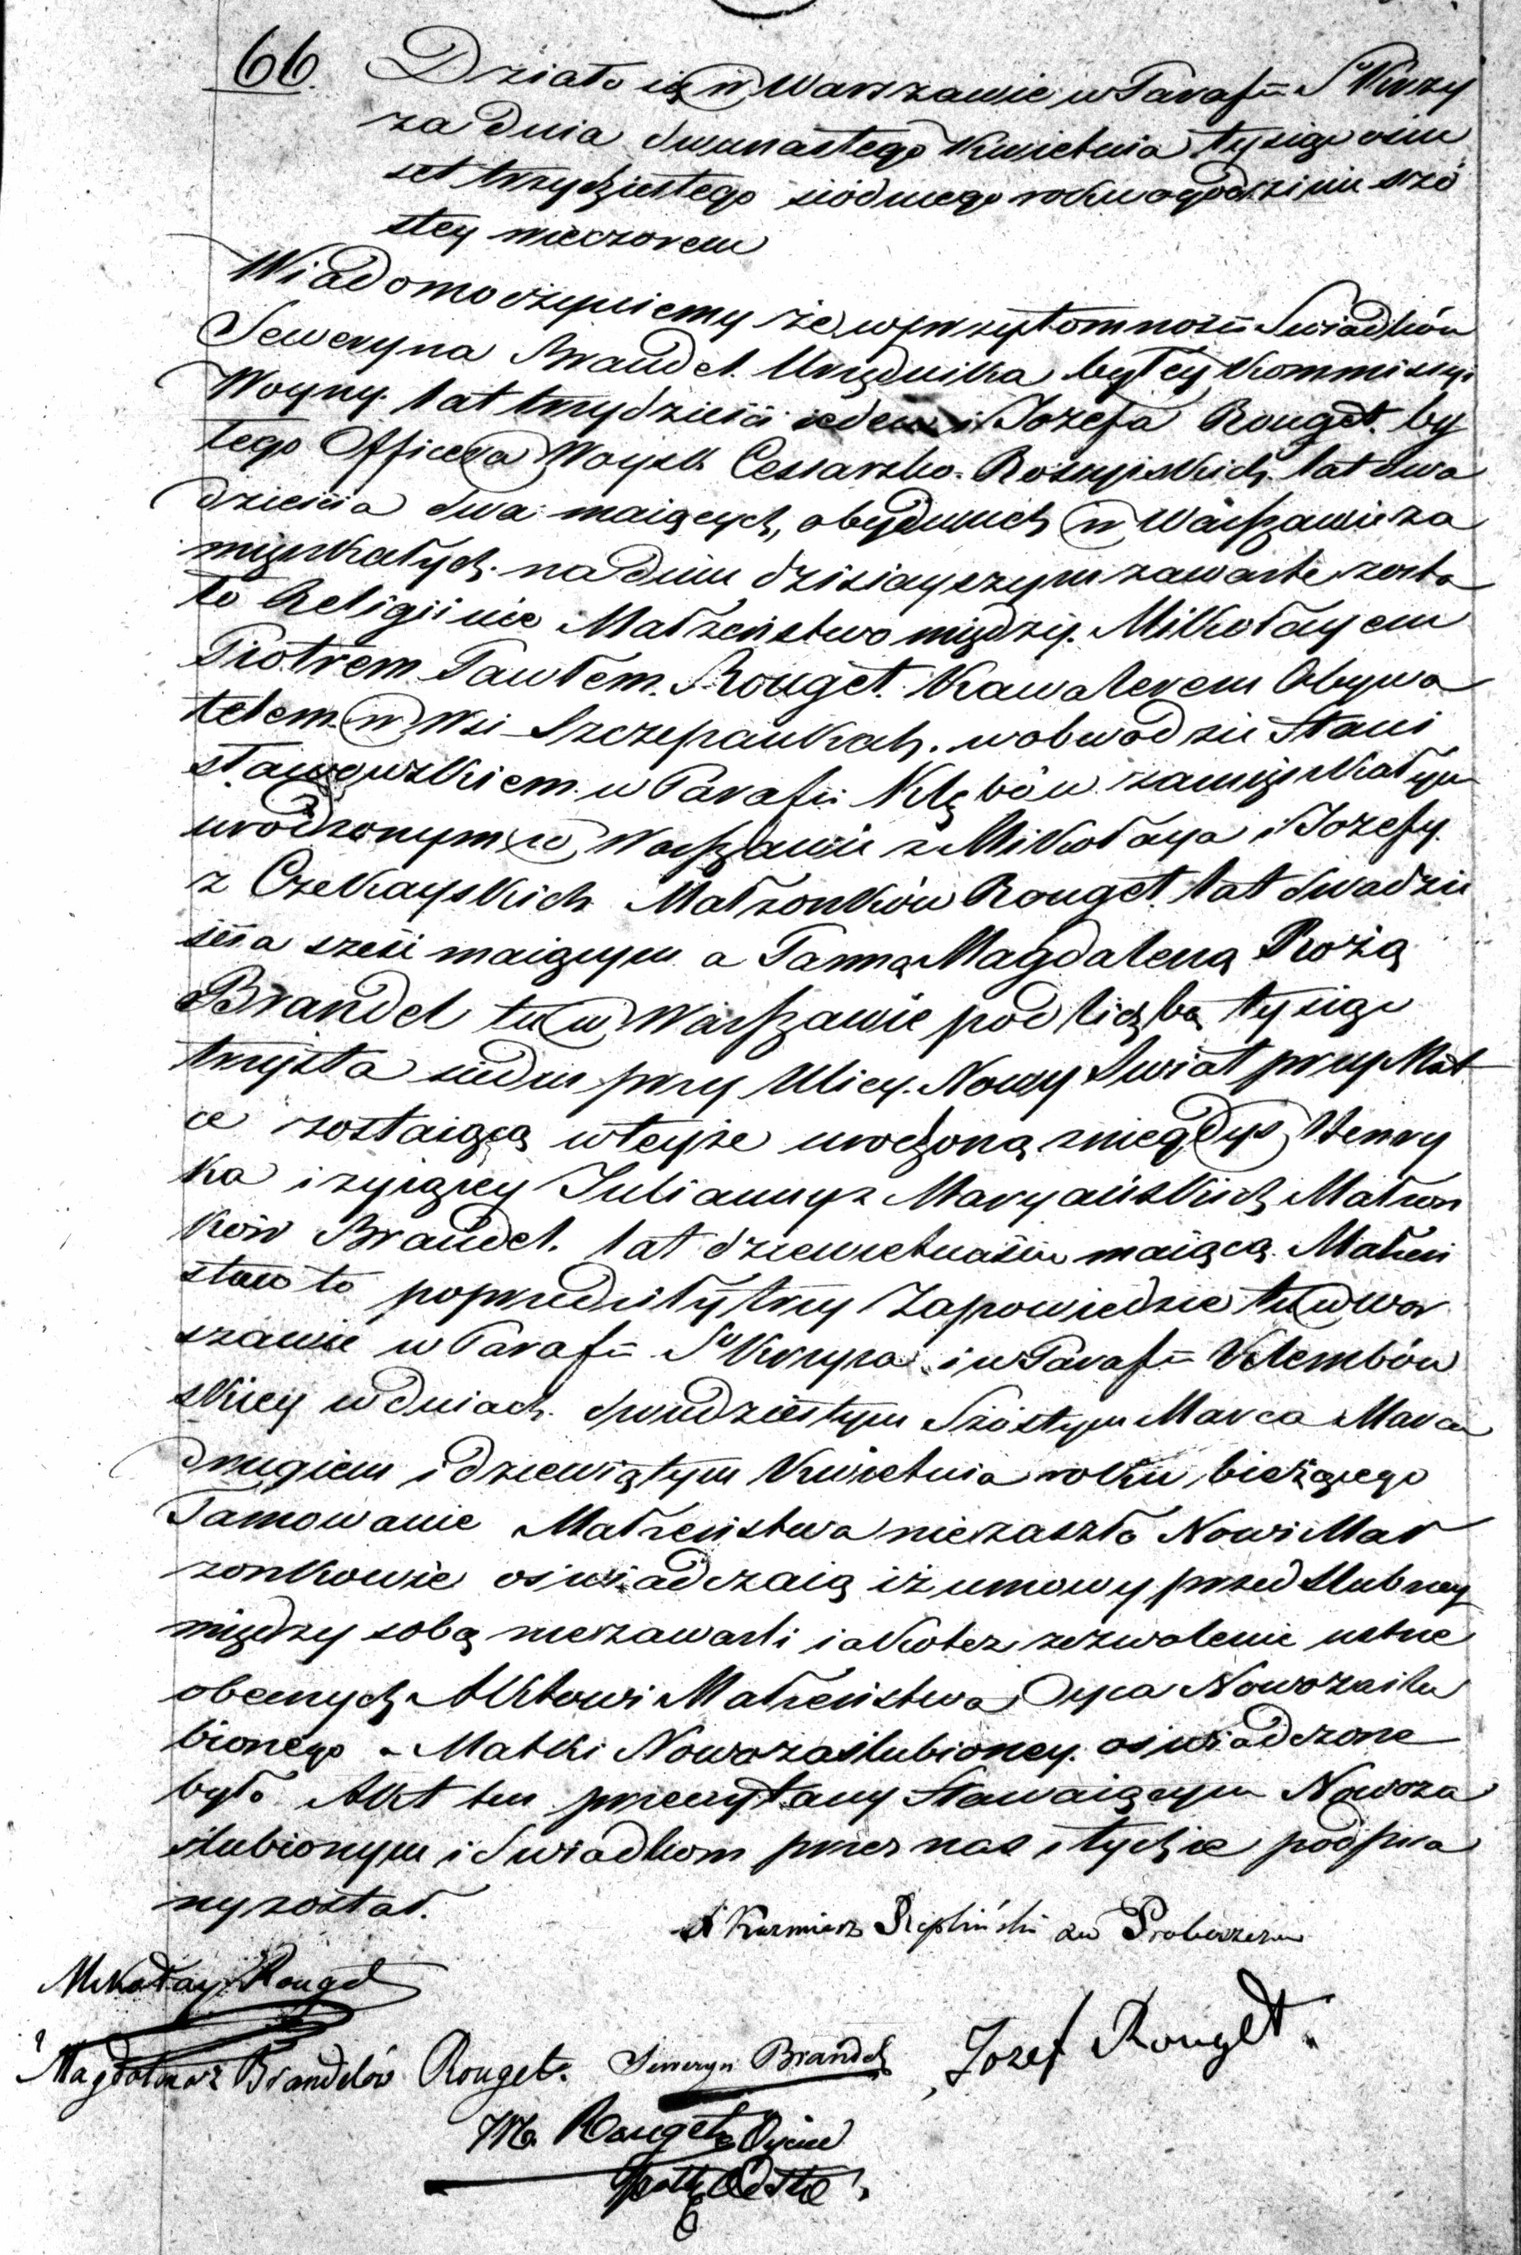 66. Działo się w Warszawie w Parafii Sgo Krzy
za dnia dwunastego Kwietnia tysiąc ośm
set trzydziestego siódmego roku o godzinie szó
stey wieczorem
Wiadomo czyniemy że w przytomności Swiadków
Seweryna Brandel. Urzędnika byłey Kommissyi
Woyny. lat trzydzieści ieden i Jozefa Rouget. by
łego Officera Woysk Cessarsko-Rossyiskich lat dwa
dzieścia dwa maiących, obydwuch w Warszawie za
mięszkałych. na dniu dzisiayszym zawarte zosta
ło Religiinie Małżeństwo między. Mikołayem
Piotrem Pawłem. Rouget. Kawalerem Obywa
telem w Wsi Szczepankach. w obwodzie Stani
sławowskiem w Parafii Klębów zamięszkałym
urodzonym w Warszawie z Mikołaya i Jozefy.
z Czekayskich Małżonków Rouget lat dwadzie
ścia sześć maiącym a Panną Magdaleną Rozą
Brandel tu w Warszawie pod liczbą tysiąc
trzysta siedm przy Ulicy. Nowy Swiat przy Mat
ce zostaiącą w teyże urodzoną z niegdyś Henry
ka i żyiącey Julianny z Maryańskich Małżon
ków Brandel. lat dziewietnaście maiącą. Małżeń
stwo to poprzedziły trzy Zapowiedzie tu w War
szawie w Parafii Sgo Krzyża i w Parafii Klembów
skiey w dniach. dwudziestym Szóstym Marca Marca
drugiem i dziewiątym Kwietnia roku bieżącego
Tamowanie Małżeństwa niezaszło Nowi Mał
żonkowie oświadczaią iż umowy przedślubney
między sobą niezawarli iakotez zezwolenie ustne
obecnych Aktowi Małżeństwa Oyca Nowozaślu
bionego a Matki Nowozaślubioney. oświadczone
było. Akt ten przeczytany Stawaiącym Nowoza
ślubionym i Swiadkom przez nas i tychże podpisa
ny został.
X Kazmierz Rzepliński za Proboszcza
Mikołay Rouget
Magdalena z Brandelów Rouget. Seweryn Brandel Jozef Rouget.
M. Rouget Oyciec